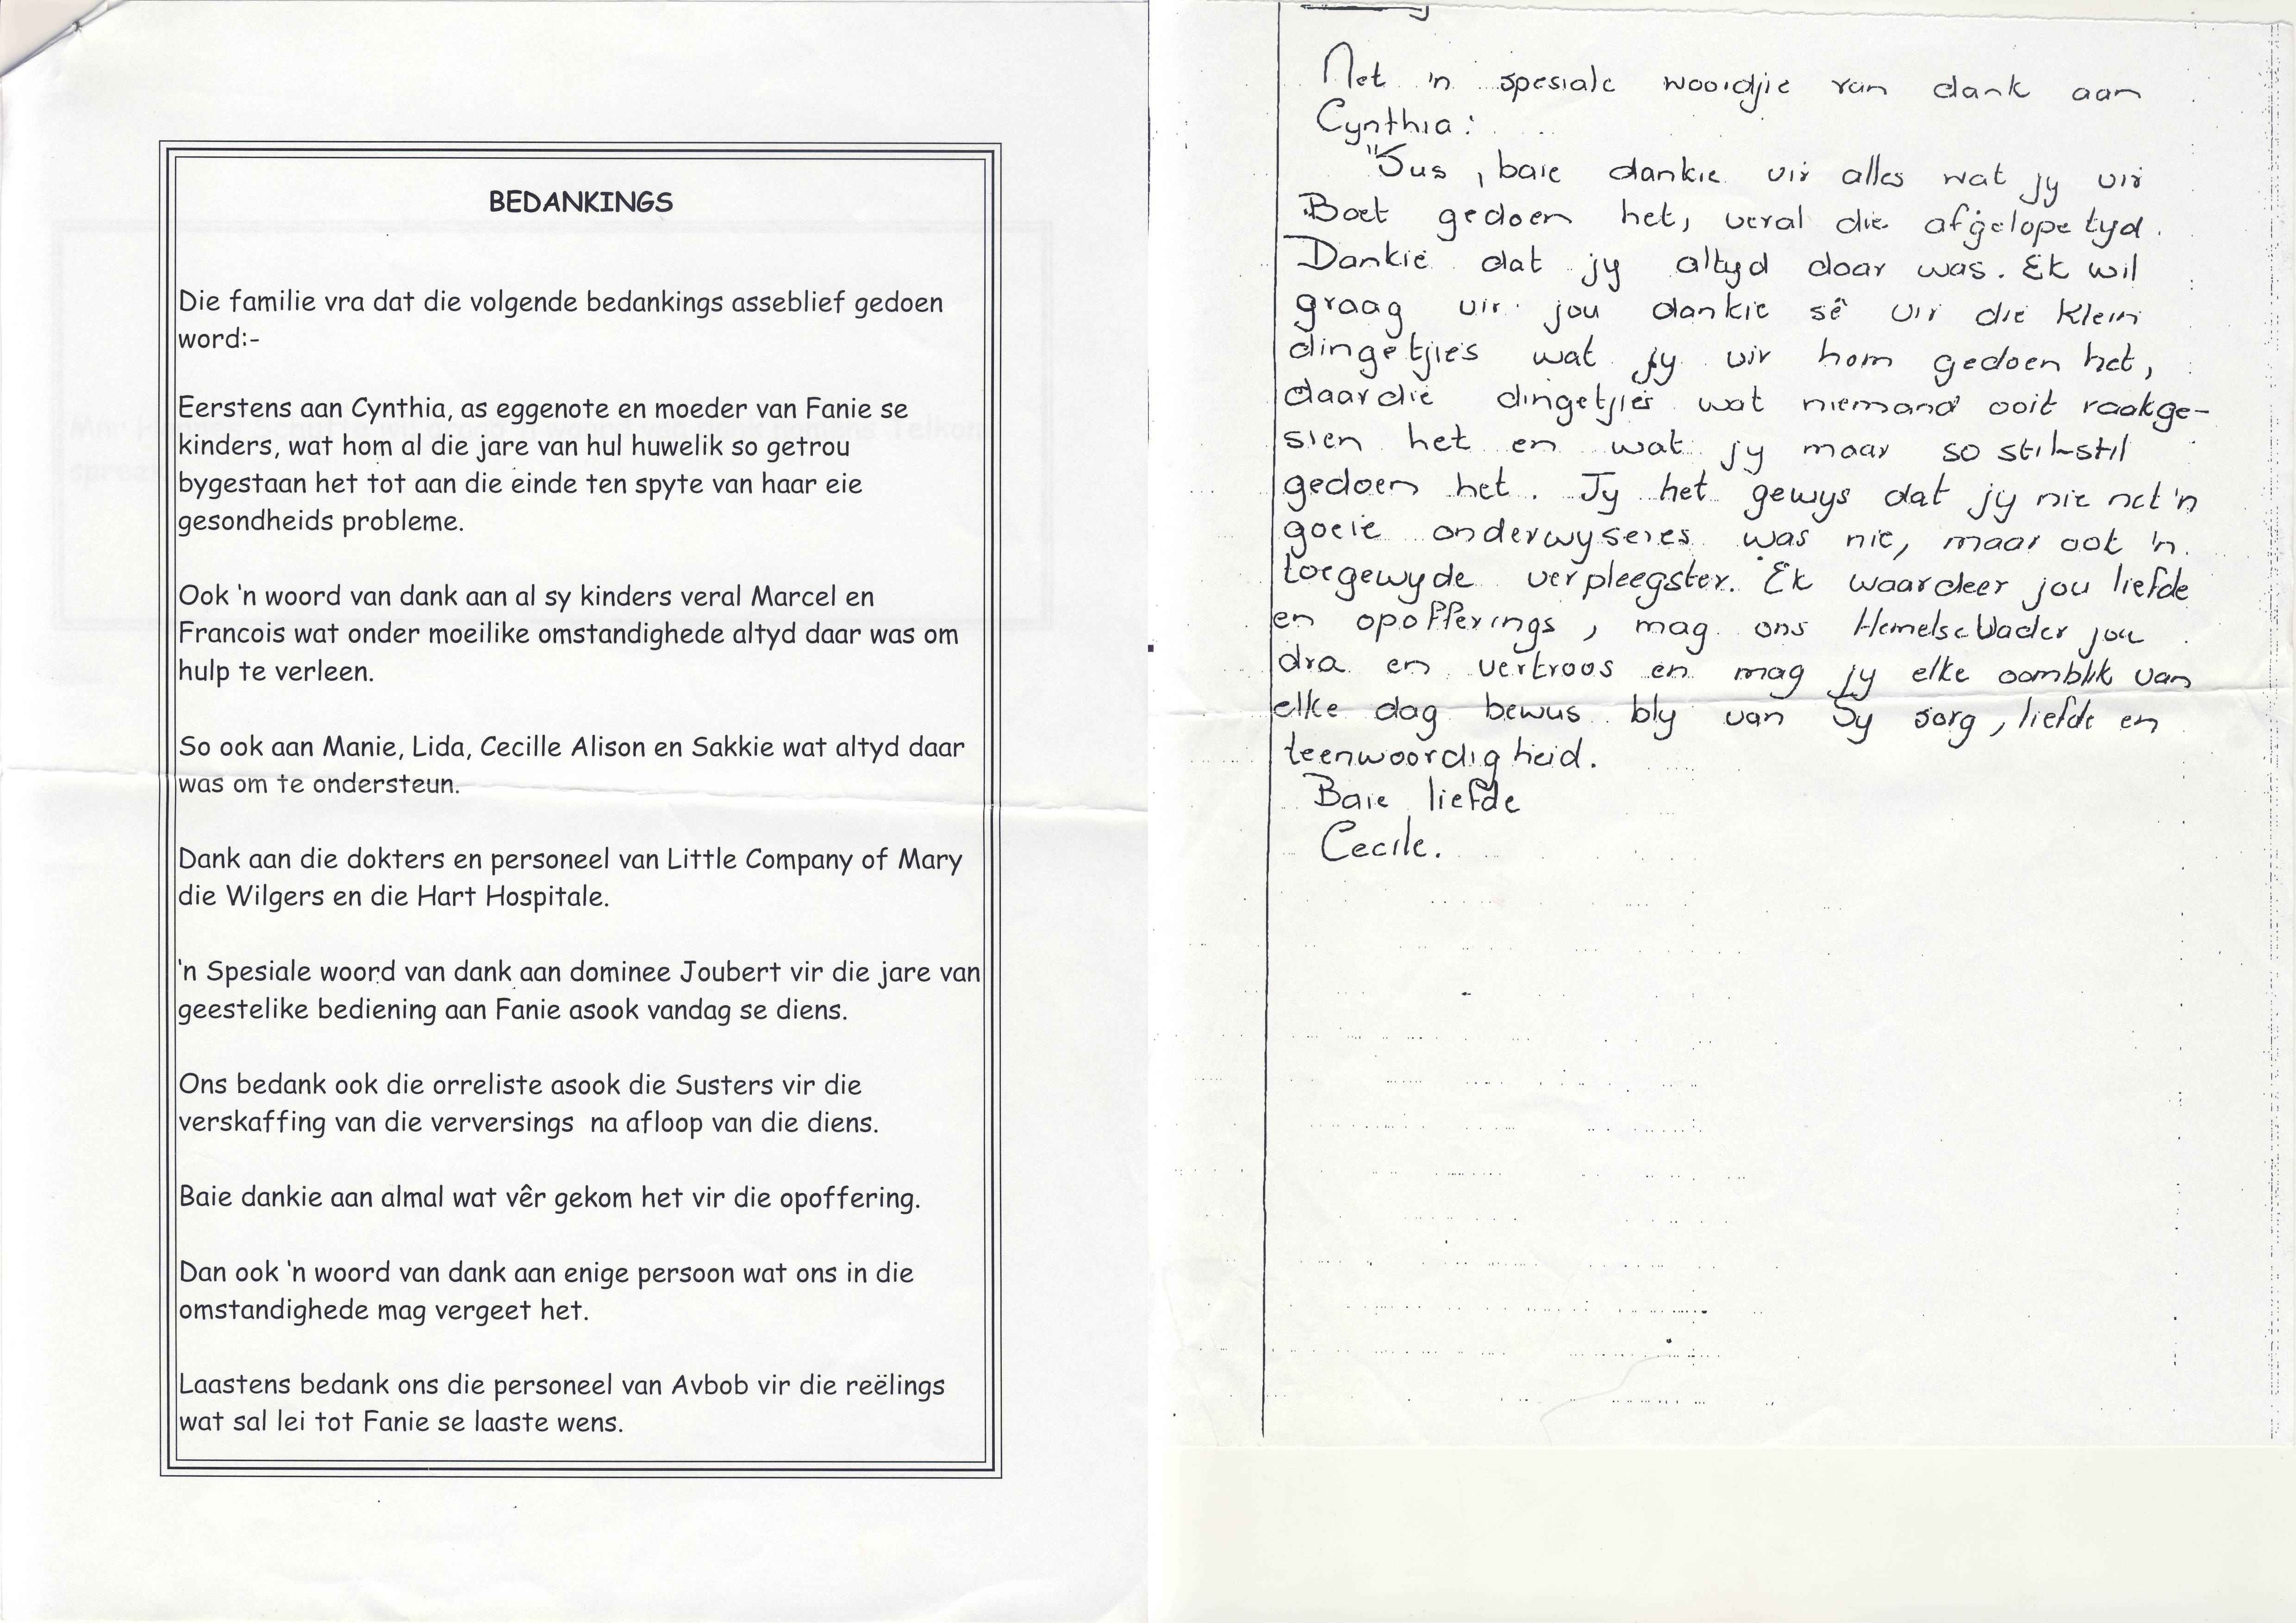 BEDANKINGS
Die familie vra dat die volgende bedankings asseblief gedoen
word:-
Eerstens aan Cynthia, as eggenote en moeder van Fanie se
kinders, wat hom al die jare van hul huwelik so getrou
bygestaan het tot aan die einde ten spyte van haar eie
gesondheids probleme.
Ook 'n woord van dank aan al sy kinders veral Marcel en
Francois wat onder moeilike omstandighede altyd daar was om
hulp te verleen.
So ook aan Manie, Lida, Cecille Alison en Sakkie wat altyd daar
was om te ondersteun.
Dank aan die dokters en personeel van Little Company of Mary
die Wilgers en die Hart Hospitale.
'n Spesiale woord van dank aan dominee Joubert vir die jare van
geestelike bediening aan Fanie asook vandag se diens.
Ons bedank ook die orreliste asook die Susters vir die
verskaffing van die verversings na afloop van die diens.
Baie dankie aan almal wat vêr gekom het vir die opoffering.
Dan ook 'n woord van dank aan enige persoon wat ons in die
omstandighede mag vergeet het.
Laastens bedank ons die personeel van Avbob vir die reëlings
wat sal lei tot Fanie se laaste wens.
Met 'n spesiale woordjie van dank aan
Cynthia:
"Sus, baie dankie vir alles wat jy vir
Boet gedoen het, veral die afgelope tyd.
Dankie dat jy altyd daar was. Ek wil
graag vir jou dankie sê vir die klein
dingetjies wat jy vir hom gedoen het,
daardie dingetjies wat niemand ooit raakge-
sien het en wat jy maar so stil-stil
gedoen het. Jy het gewys dat jy nie net 'n
goeie onderwyseres was nie, maar ook 'n
toegewyde verpleegster. Ek waardeer jou liefde
en opofferings, mag ons Hemelse Vader jou
dra en vertroos en mag jy elke oomblik van
elke dag bewus bly van Sy sorg, liefde en
teenwoordigheid.
Baie liefde
Cecile.